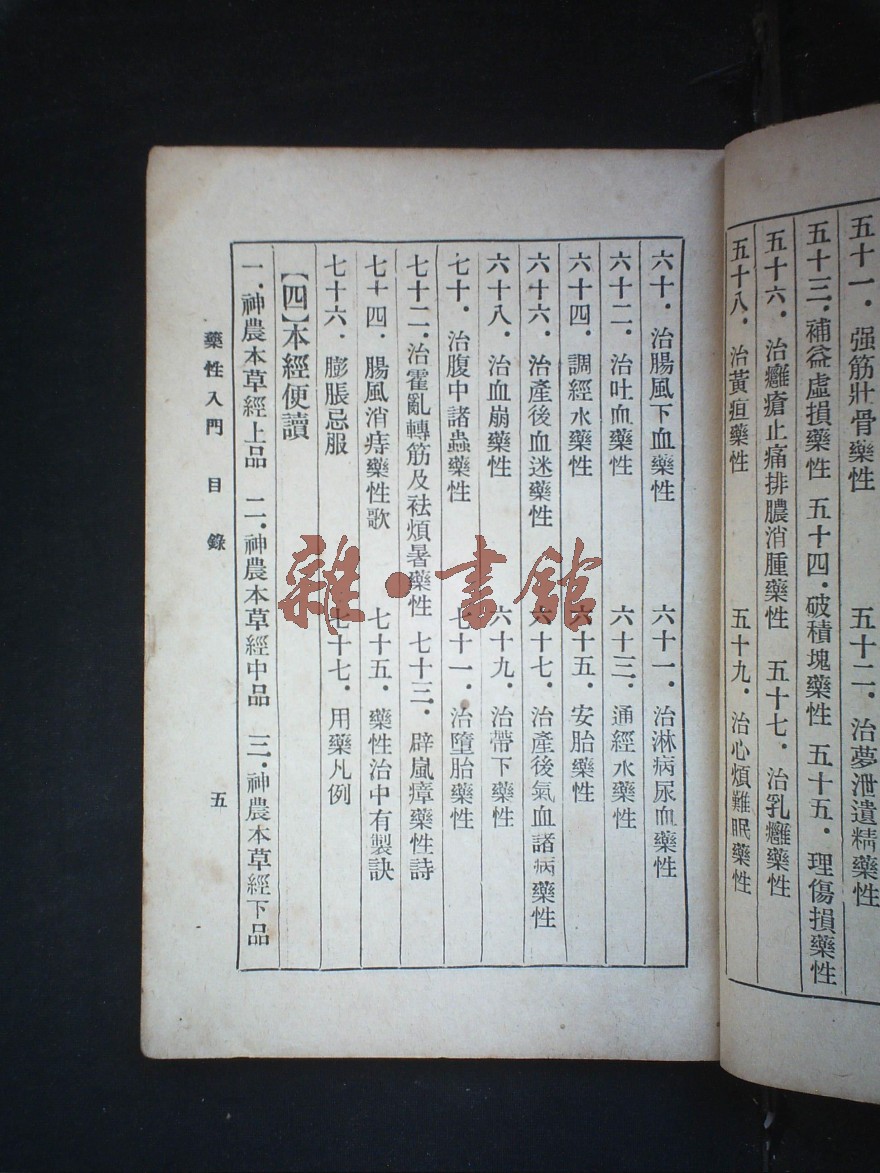 五十一．强筋壯骨藥性　五十二．治夢泄遺精藥性
五十三．補益虛損藥性　五十四．破積塊藥性　五十五．理傷損藥性
五十六．治癰瘡止痛排膿消腫藥性　五十七．治乳癰藥性
五十八．治黃疸藥性　五十九．治心煩難眠藥性
六十．治腸風下血藥性　六十一．治淋病尿血藥性
六十二．治吐血藥性　六十三．通經水藥性
六十四．調經水藥性　六十五．安胎藥性
六十六．治產後血迷藥性　六十七．治產後氣血諸病藥性
六十八．治血崩藥性　六十九．治帶下藥性
七十．治腹中諸蟲藥性　七十一．治墮胎藥性
七十二．治霍亂轉筋及祛煩暑藥性　七十三．辟嵐瘴藥性詩
七十四．腸風消痔藥性歌　七十五．藥性治中有製訣
七十六．膨脹忌服　七十七．用藥凡例
【四】本經便讀
一．神農本草經上品　二．神農本草經中品　三．神農本草經下品
藥性入門　目錄　五
雜·書館